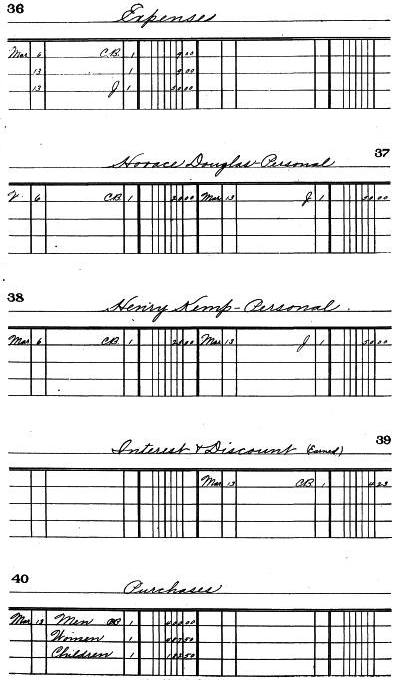 36
Expenses
Mar 6 C.B. 1 9.00
13 1 9.00
13 J 1 50.00
37
Horace Douglas-Personal
6 C.B. 1 Mar 13 J 1 50.00
38
Henry Kemp-Personal.
Mar 6 C.B. 1 Mar 13 J 1 50.00
39
Interest & Discount (Earned)
Mar 13 C.B. 1 4.23
40
Purchases
Mar 13 Men 1
Women 1
Children 1